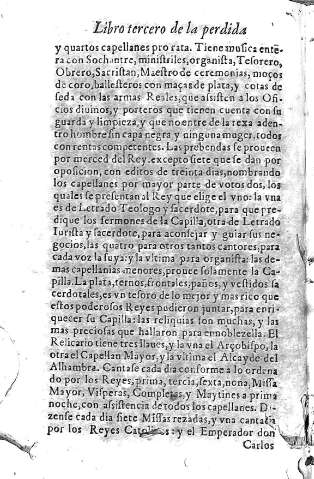 Libro tercero de la perdida
y quartos capellanes pro rata. Tiene musica ente-
ra con Sochantre, ministriles, organista, Tesorero,
Obrero, Sacristan, Maestro de ceremonias, moços
de coro, ballesteros con maças de plata, y cotas de
seda con las armas Reales, que assisten a los Ofi
cios diuinos, y porteros que tienen cuenta con su
guarda y limpieza, y que no entre de la rexa aden-
tro hombre sin capa negra y ninguna muger, todos
con rentas competentes. Las prebendas se proueen
por merced del Rey, excepto siete que se dan por
oposicion, con editos de treinta dias, nombrando
los capellanes por mayor parte de votos dos, los
quales se presentan al Rey que elige el vno: la vna
es de Letrado Teologo y sacerdote, para que pre-
dique los sermones de la Capilla, otra de Letrado
Iurista y sacerdote, para aconsejar y guiar sus ne-
gocios, las quatro para otros tantos cantores, para
cada voz la suya: y la vltima para organista: las de-
mas capellanias menores, prouee solamente la Ca-
pilla. La plata, ternos, frontales, paños, y vestidos sa
cerdotales, es vn tesoro de lo mejor y mas rico que
estos poderosos Reyes pudieron juntar, para enri-
quecer su Capilla: las reliquias son muchas, y las
mas preciosas que hallaron para ennoblezella. El
Relicario tiene tres llaues, y la vna el Arçobispo, la
otra el Capellan Mayor, y la vltima el Alcayde del
Alhambra. Cantase cada dia conforme a lo ordena
do por los Reyes, prima, tercia, sexta, nona, Missa
Mayor, Visperas, Completas, y Maytines a prima
noche, con assistencia de todos los capellanes. Di
zense cada dia siete Missas rezadas, y vna cantada
por los Reyes Catolicos: y el Emperador don
Carlos